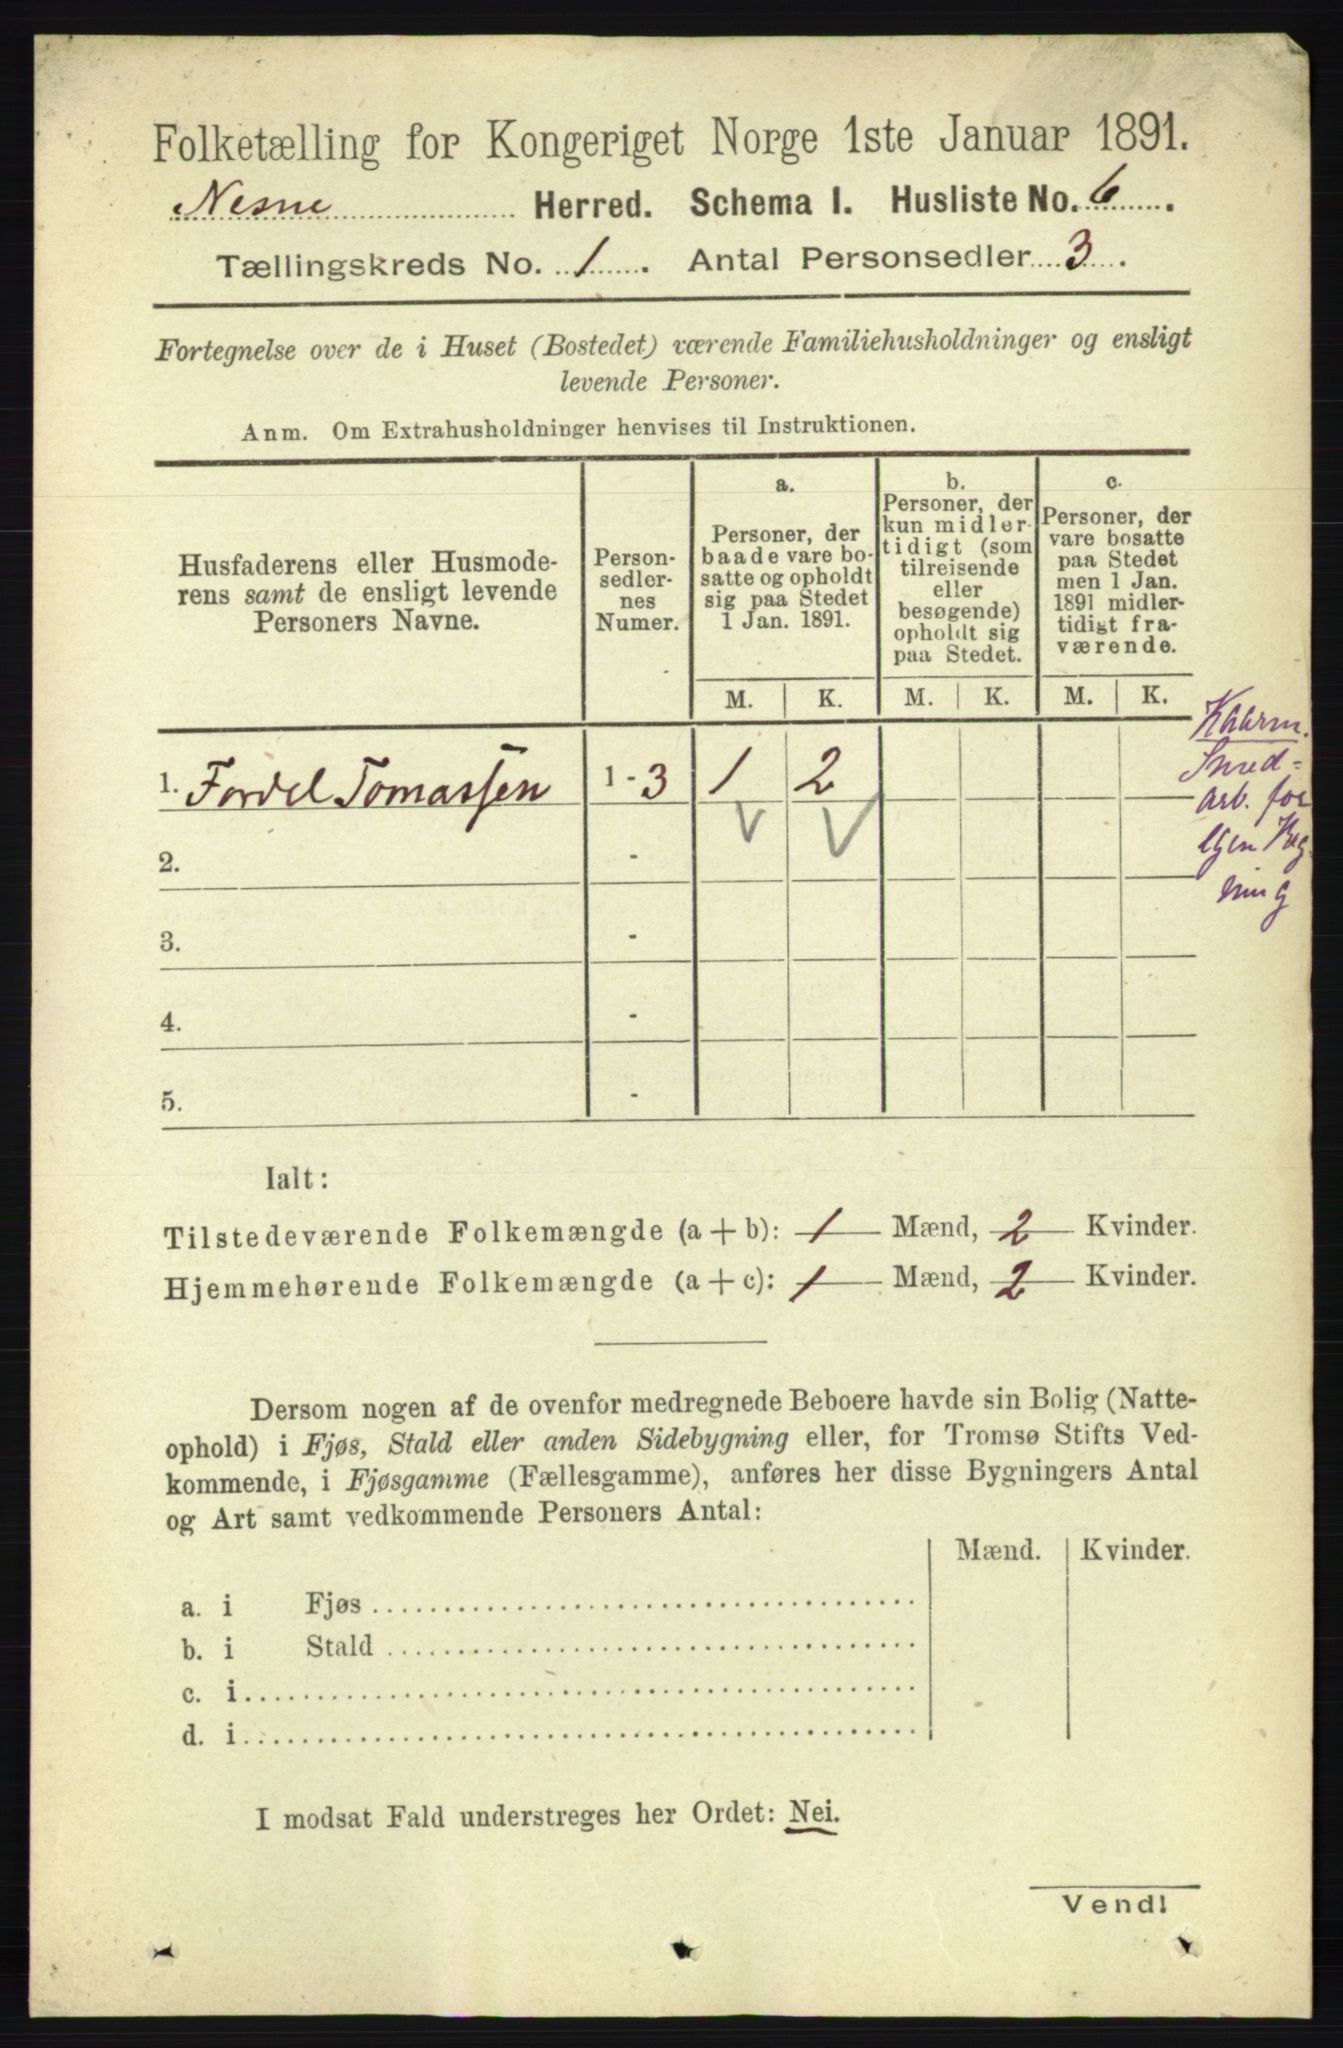 Folketælling for Kongeriget Norge 1ste Januar 1891.
Nesne Herred. Schema I. Husliste No. 6.
Tællingskreds No. 1. Antal Personsedler 3.
Fortegnelse over de i Huset (Bostedet) værende Familiehusholdninger og ensligt
levende Personer.
Anm. Om Extrahusholdninger henvises til Instruktionen.
Husfaderens eller Husmode-
rens samt de ensligt levende
Personers Navne.
Person-
sedler-
nes
Numer.
a.
Personer, der
baade vare bo-
satte og opholdt
sig paa Stedet
1 Jan. 1891.
b.
Personer, der
kun midler-
tidigt (som
tilreisende
eller
besøgende)
opholdt sig
paa Stedet.
c.
Personer, der
vare bosatte
paa Stedet
men 1 Jan.
1891 midler-
tidigt fra-
værende.
M. K. M. K. M. K.
1. Fordel Tomassen 1 - 3 1 2
2. -
3. -
4. -
5. -
Sned-
arb. for
egen
ning
Ialt:
Tilstedeværende Folkemængde (a + b): 1 Mænd, 2 Kvinder.
Hjemmehørende Folkemængde (a + c): 1 Mænd, 2 Kvinder.
Dersom nogen af de ovenfor medregnede Beboere havde sin Bolig (Natte-
ophold) i Fjøs, Stald eller anden Sidebygning eller, for Tromsø Stifts Ved-
kommende, i Fjøsgamme (Fællesgamme), anføres her disse Bygningers Antal
og Art samt vedkommende Personers Antal:
Mænd. Kvinder.
a. i Fjøs
b. i Stald
c. i
d. i
I modsat Fald understreges her Ordet: Nei.
Vend!